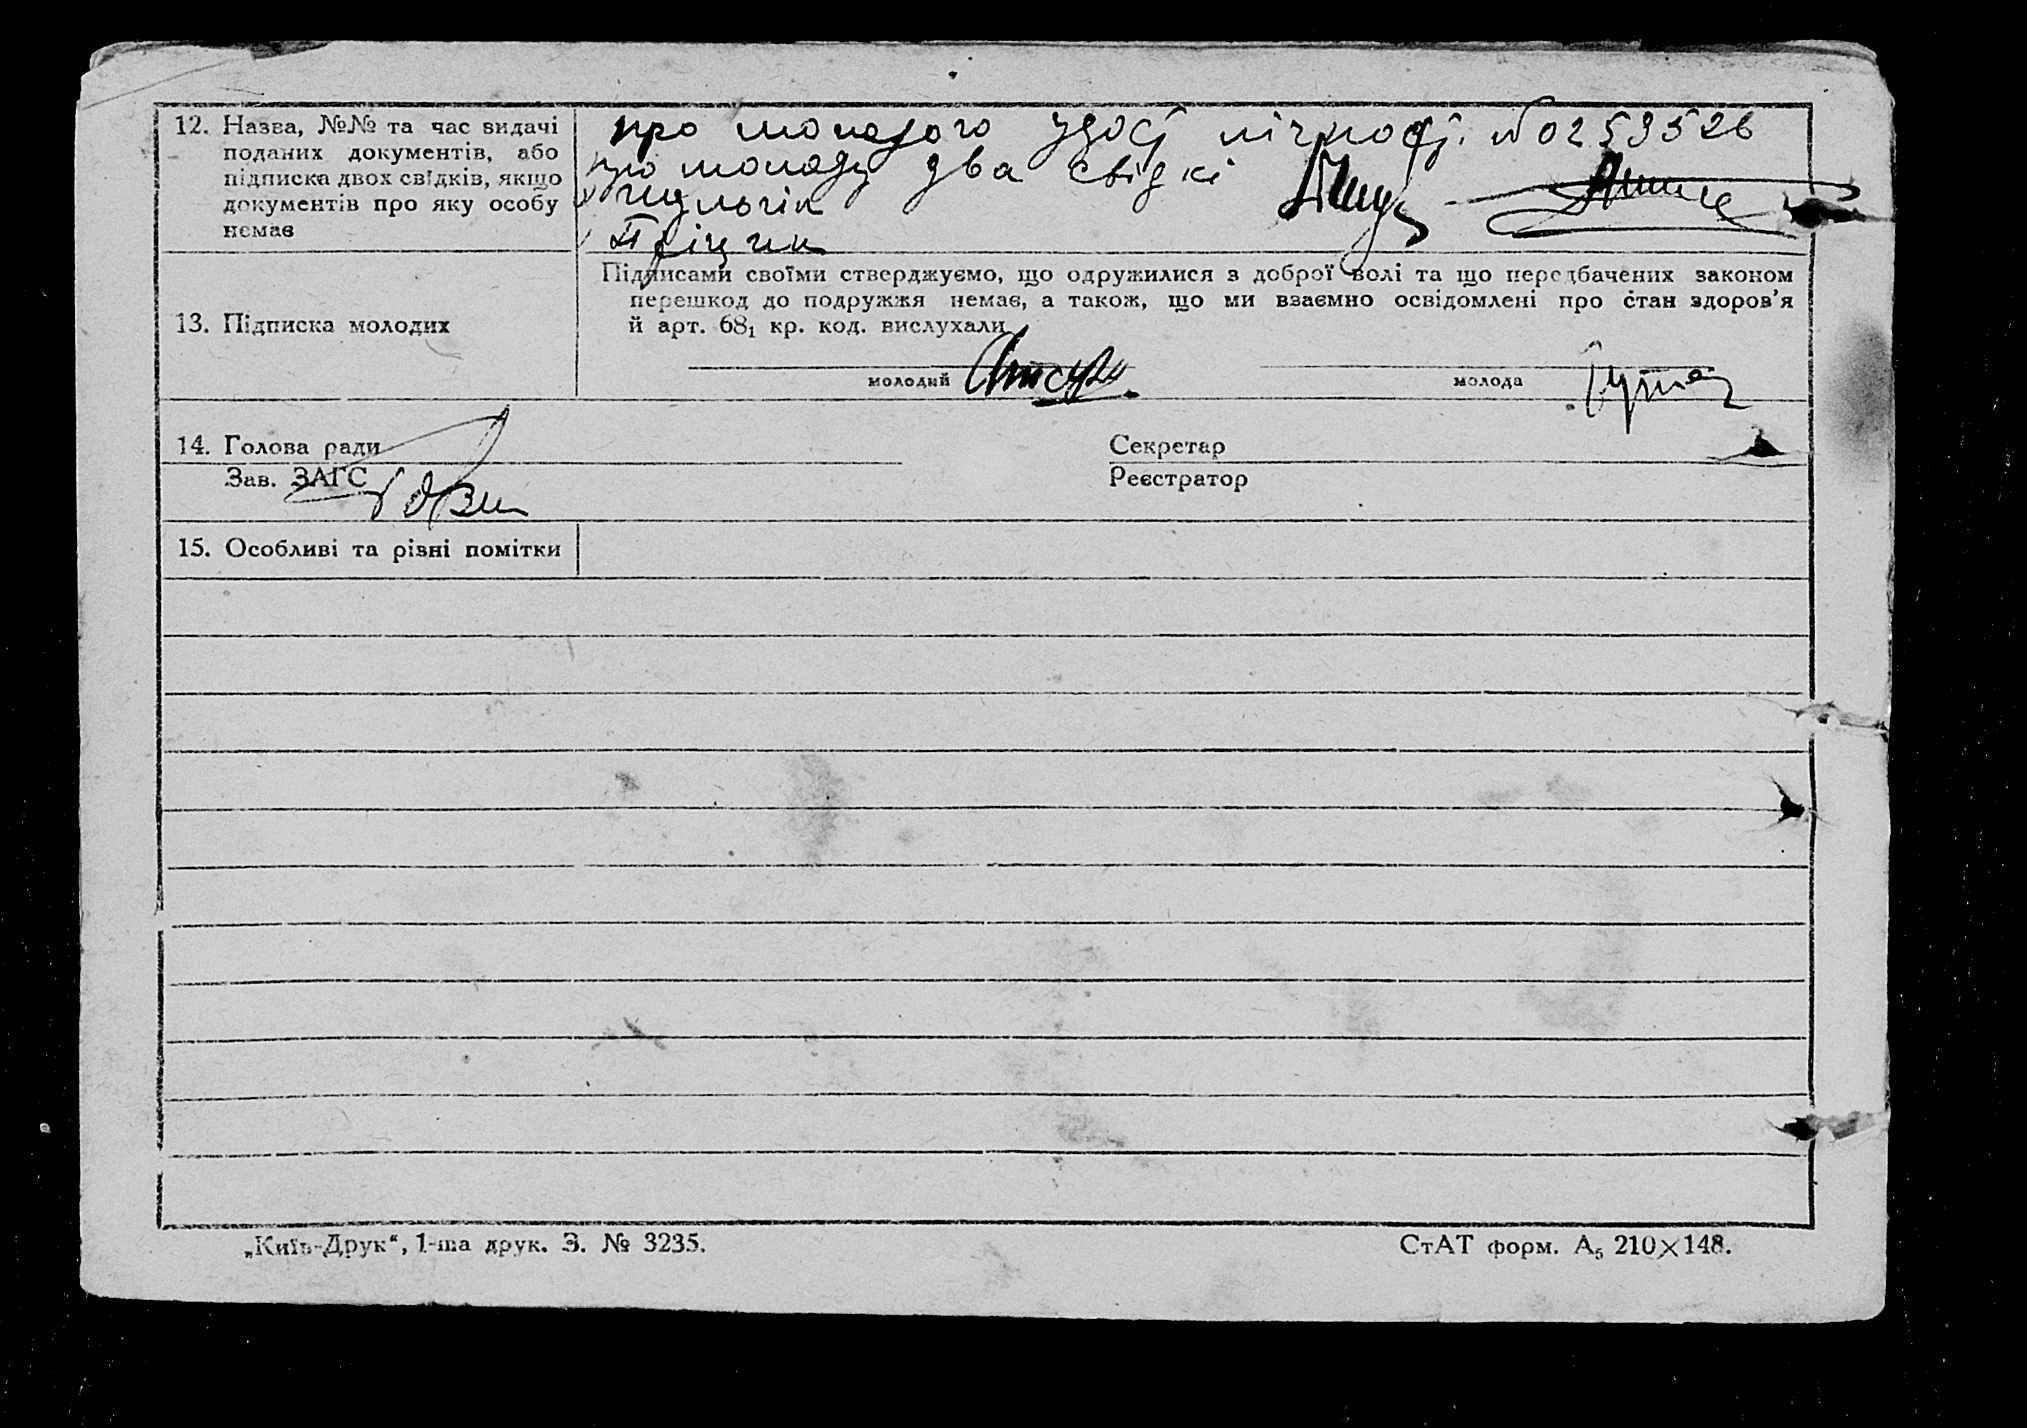 12. Назва, №№ та час видачі
поданих документів, або
підписка двох свідків, якщо
документів про яку особу
немає
про молодого удост лічності. №0259526
про молоду два свідкі
Шульгін
13. Підписка молодих
Підписами своїми стверджуємо, що одружилися з доброї волі та що передбачених законом
перешкод до подружжя немає, а також, що ми взаємно освідомлені про стан здоров’я
й арт. 68₁ кр. код. вислухали
молодий
молода
14. Голова ради
Секретар
Зав. ЗАГС
Реєстратор
15. Особливі та різні помітки
„Київ-Друк“, 1-ша друк. З. № 3235.
СтАТ форм. А₅ 210×148.